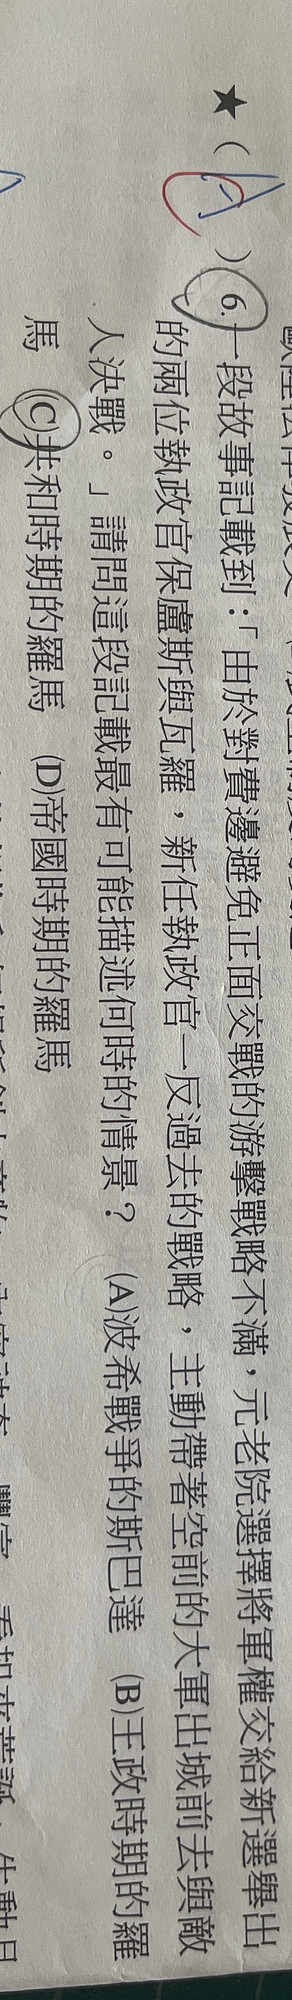 ★( A )6.一段故事記載到:「由於對費邊避免正面交戰的游擊戰略不滿，元老院選擇將軍權交給新選舉出
的兩位執政官保盧斯與瓦羅，新任執政官一反過去的戰略，主動帶著空前的大軍出城前去與敵
人決戰。」請問這段記載最有可能描述何時的情景？ (A)波希戰爭的斯巴達 (B)王政時期的羅
馬 (C)共和時期的羅馬 (D)帝國時期的羅馬